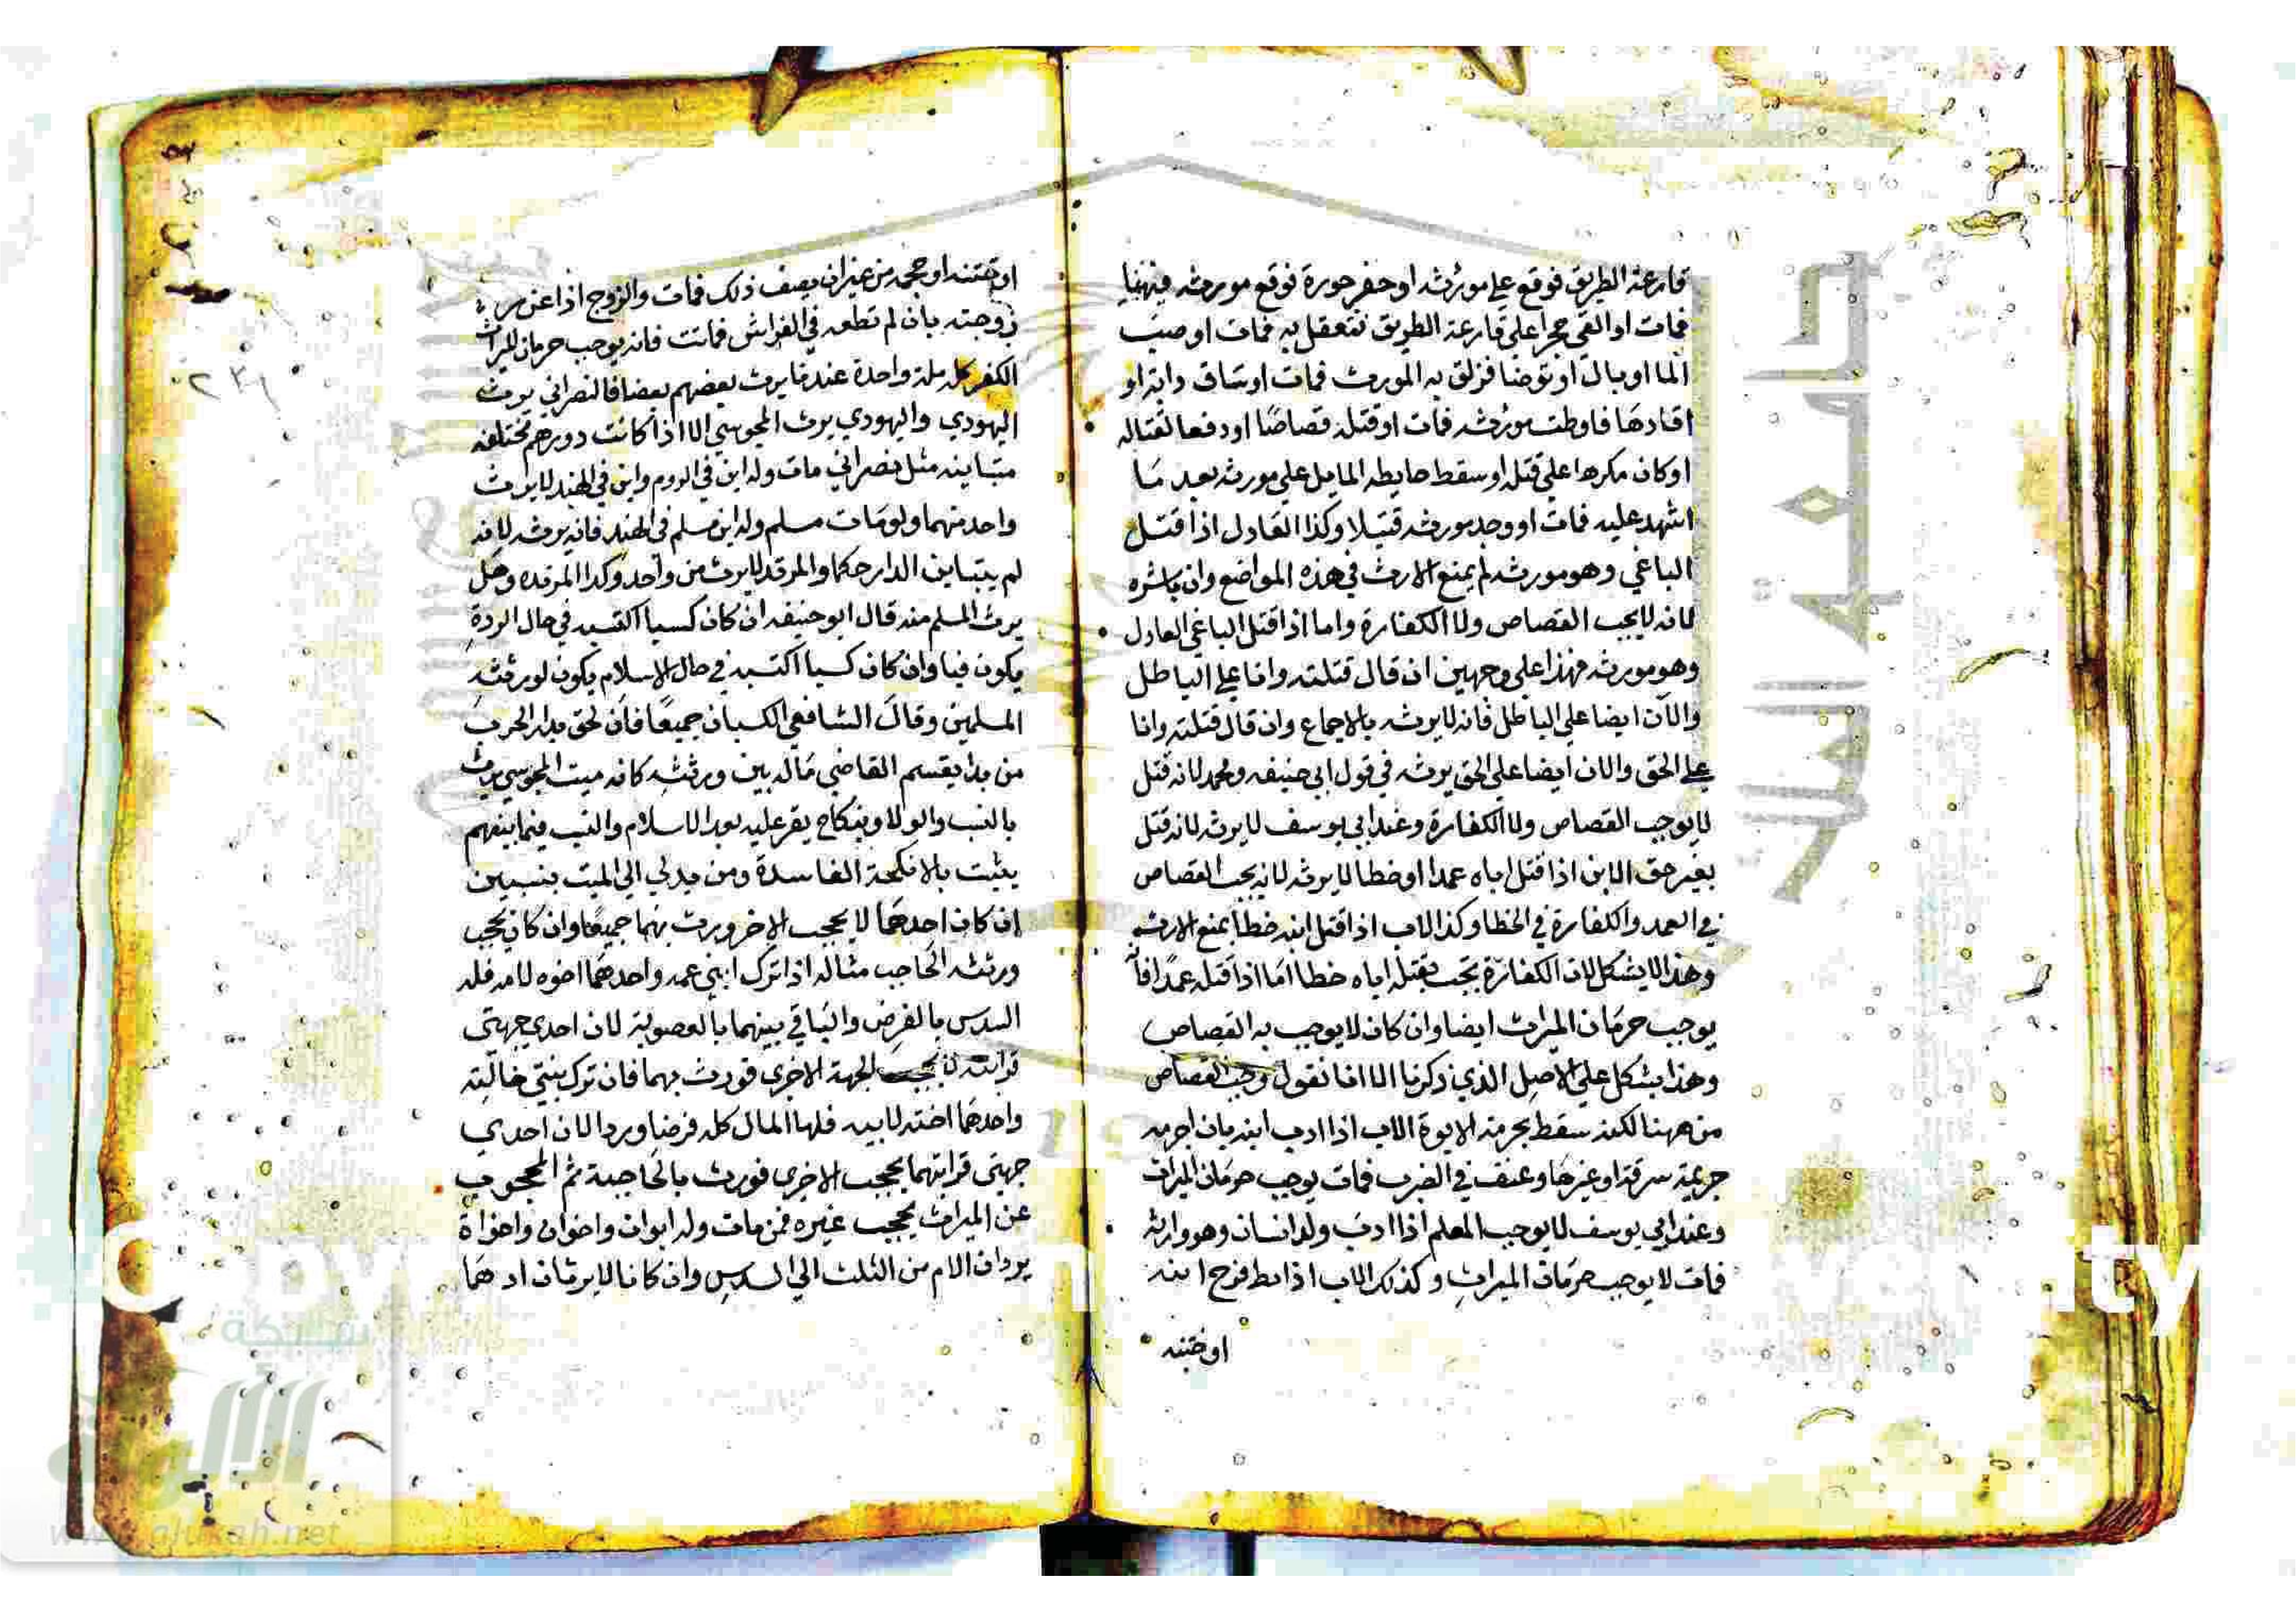 قارعة الطريق فوقع علي مورثه او حفر حورة فوقع مورثه فيها
فمات او القي حجرا علي قارعة الطريق فتعقل به فمات او صب
الما او بال او توضا فزلق به المورث فمات او ساق دابة او
اقادها فاوطت مورثه فمات او قتله قصاصا او دفعا لقتاله
او كان مكرها علي قتله او سقط حايطه المايل علي مورثه بعد ما
اشهد عليه فمات او وجد مورثه قتيلا وكذا العادل اذا قتل
الباغي وهو مورثه لم يمنع الارث في هذه المواضع وان باشره
لانه لا يجب القصاص ولا الكفارة واما اذا قتل الباغي العادل
وهو مورثه فهذا علي وجهين ان قال قتلته وانا علي الباطل
والان ايضا علي الباطل فانه لا يرثه بالاجماع وان قال قتلته وانا
علي الحق والان ايضا علي الحق يرثه في قول ابي حنيفه ومحمد لانه قتل
لا يوجب القصاص ولا الكفارة وعند ابي يوسف لا يرثه لانه قتل
بغير حق الابن اذا قتل اباه عمدا او خطا لا يرثه لانه يجب القصاص
في العمد والكفارة في الخطا وكذا الاب اذا قتل ابنه خطا يمنع الارث
وهذا لا يشكل لان الكفارة تجب بقتله اباه خطا اما اذا قتله عمدا فانه
يوجب حرمان الميراث ايضا وان كان لا يوجب به القصاص
وهذا يشكل علي الاصل الذي ذكرنا الا انا نقول وجب القصاص
من ههنا لكنه سقط بحرمة الابوة الاب اذا ادب ابنه بان اجرم
جريمة سرقة او غيرها وعنف في الضرب فمات يوجب حرمان الميراث
وعند ابي يوسف لا يوجب المعلم اذا ادب ولد انسان وهو وارثه
فمات لا يوجب حرمان الميراث وكذلك الاب اذا بط قرح ابنه
او ختنه
او ختنه او حجمه من غير ان يصف ذلك فمات والزوج اذا عزر
زوجته بان لم تطعه في الفراش فماتت فانه يوجب حرمان الميراث
الكفر كله ملة واحدة عندنا يرث بعضهم بعضا فالنصراني يرث
اليهودي واليهودي يرث المجوسي الا اذا كانت دورهم مختلفه
متباينه مثل نصراني مات وله ابن في الروم وابن في الهند لا يرث
واحد منهما ولو مات مسلم وله ابن مسلم في الهند فانه يرثه لانه
لم يتباين الدار حكما والمرتد لا يرث من واحد وكذا المرتده وهل
يرث المسلم منه قال ابو حنيفه ان كان كسبا اكتسبه في حال الردة
يكون فيا وان كان كسبا اكتسبه في حال الاسلام يكون لورثته
المسلمين وقال الشافعي الكسبان جميعا فان لحق بدار الحرب
من بدا يقسم القاضي ماله بين ورثته كانه ميت المجوسي يرث
بالنسب والولا وبنكاح يقر عليه بعد الاسلام والنسب فيما بينهم
يثبت بالانكحة الفاسدة ومن يدلي الي الميت بنسبين
ان كان احدهما لا يحجب الاخر ورث بهما جميعا وان كان يحجب
ورثته الحاجب مثاله اذا ترك ابني عمه واحدهما اخوه لامه فله
السدس بالفرض والباقي بينهما بالعصوبة لان احدي جهتي
قرابته لا تحجب الجهة الاخري فورث بهما فان ترك بنتي خالته
واحدهما اخته لابيه فلها المال كله فرضا وردا لان احدي
جهتي قرابتهما يحجب الاخري فورث بالحاجبة ثم المحجوب
عن الميراث يحجب غيره فمن مات وله ابوان واخوان واخواة
يردان الام من الثلث الي السدس وان كانا لا يرثان